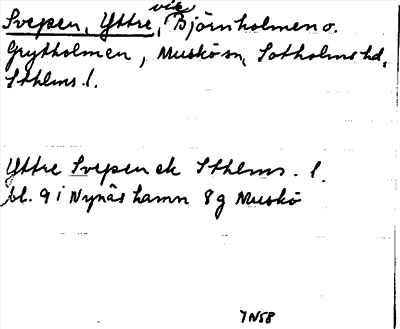 Svepen, Yttre, vik, Björnholmen o.
Grytholmen, Muskö sn, Sotholms hd,
Sthlms l.
Yttre Svepen ek Sthlms. l.
bl. 9 i Nynäshamn 8 g Muskö
7N58